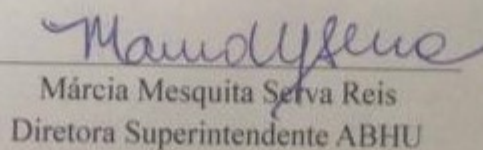 Márcia Mesquita Serva Reis
Diretora Superintendente ABHU